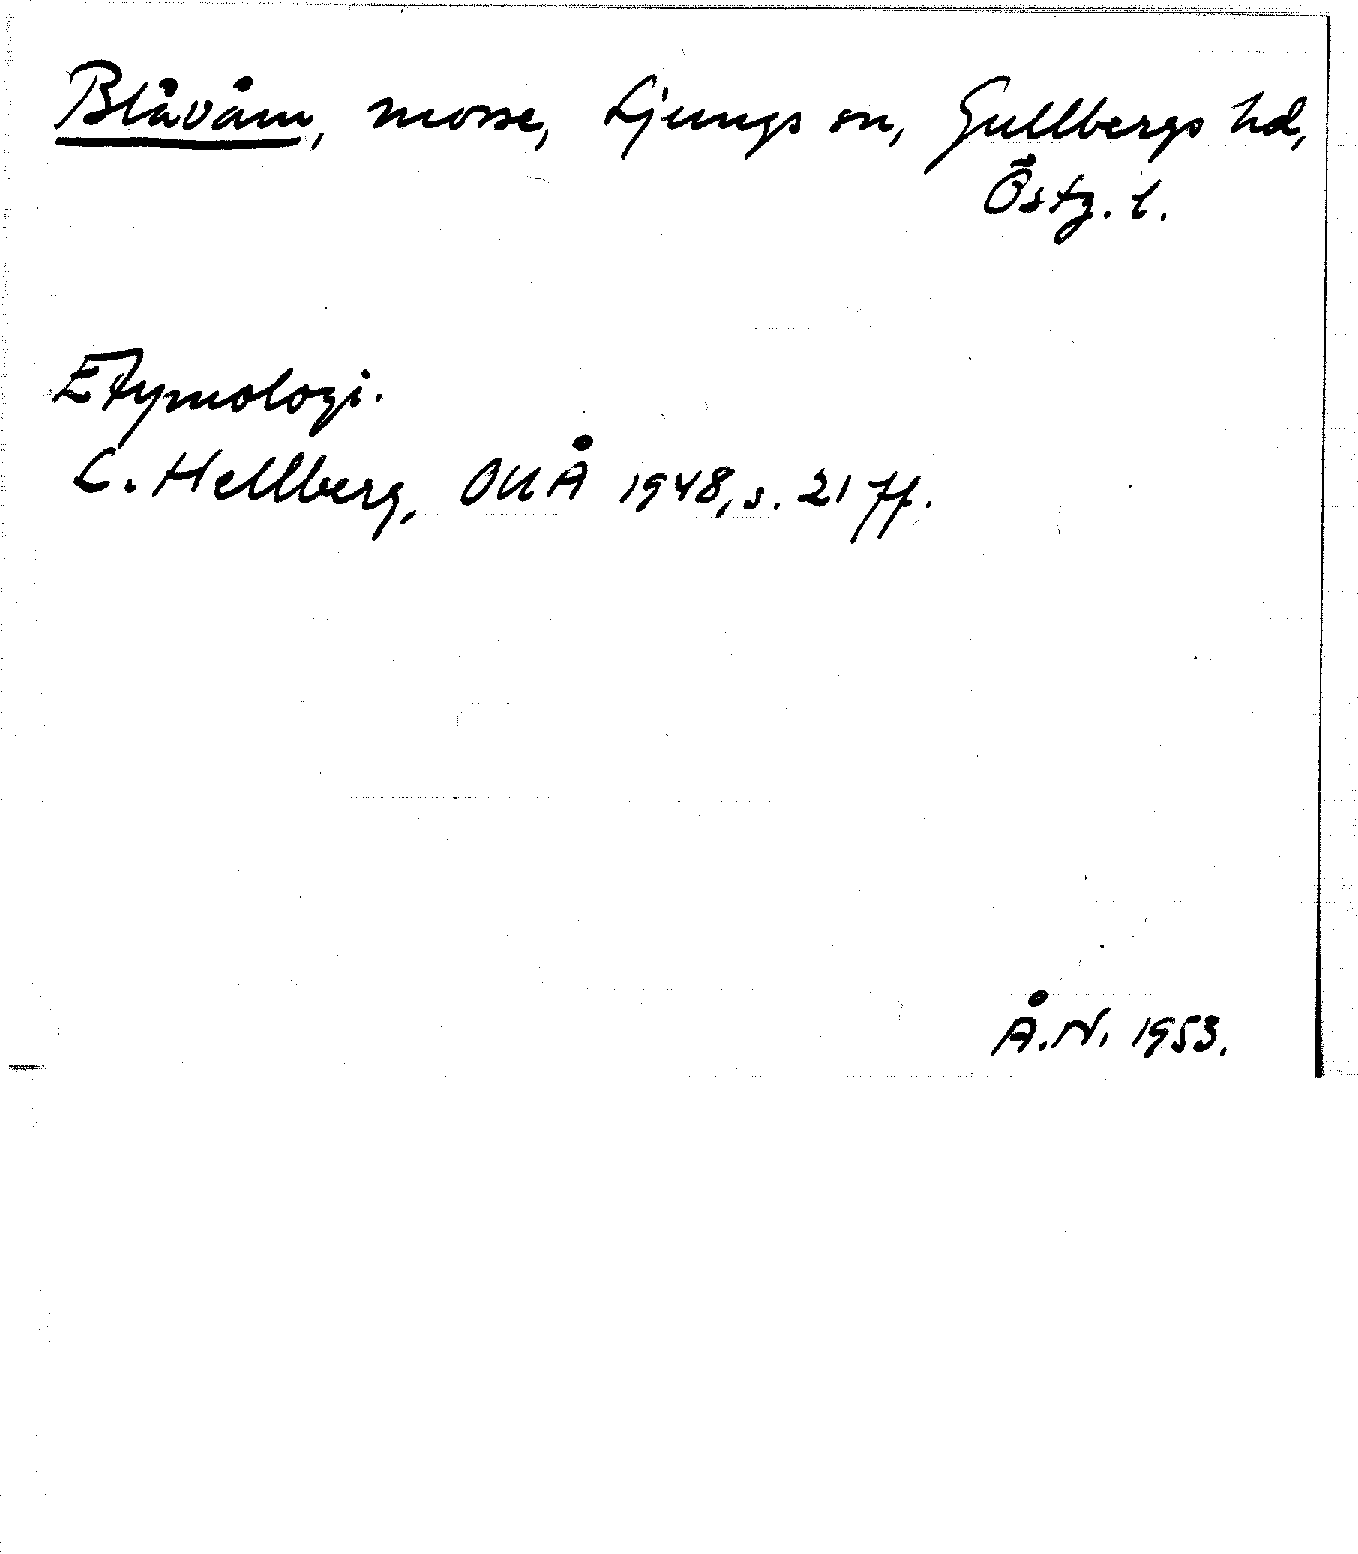 Blåvåm, mosse, Ljungs sn, Gullbergs hd,
Östg. l.
Etymologi.
L. Hellberg, OUÅ 1948, s. 21 ff.
Å. N. 1953.